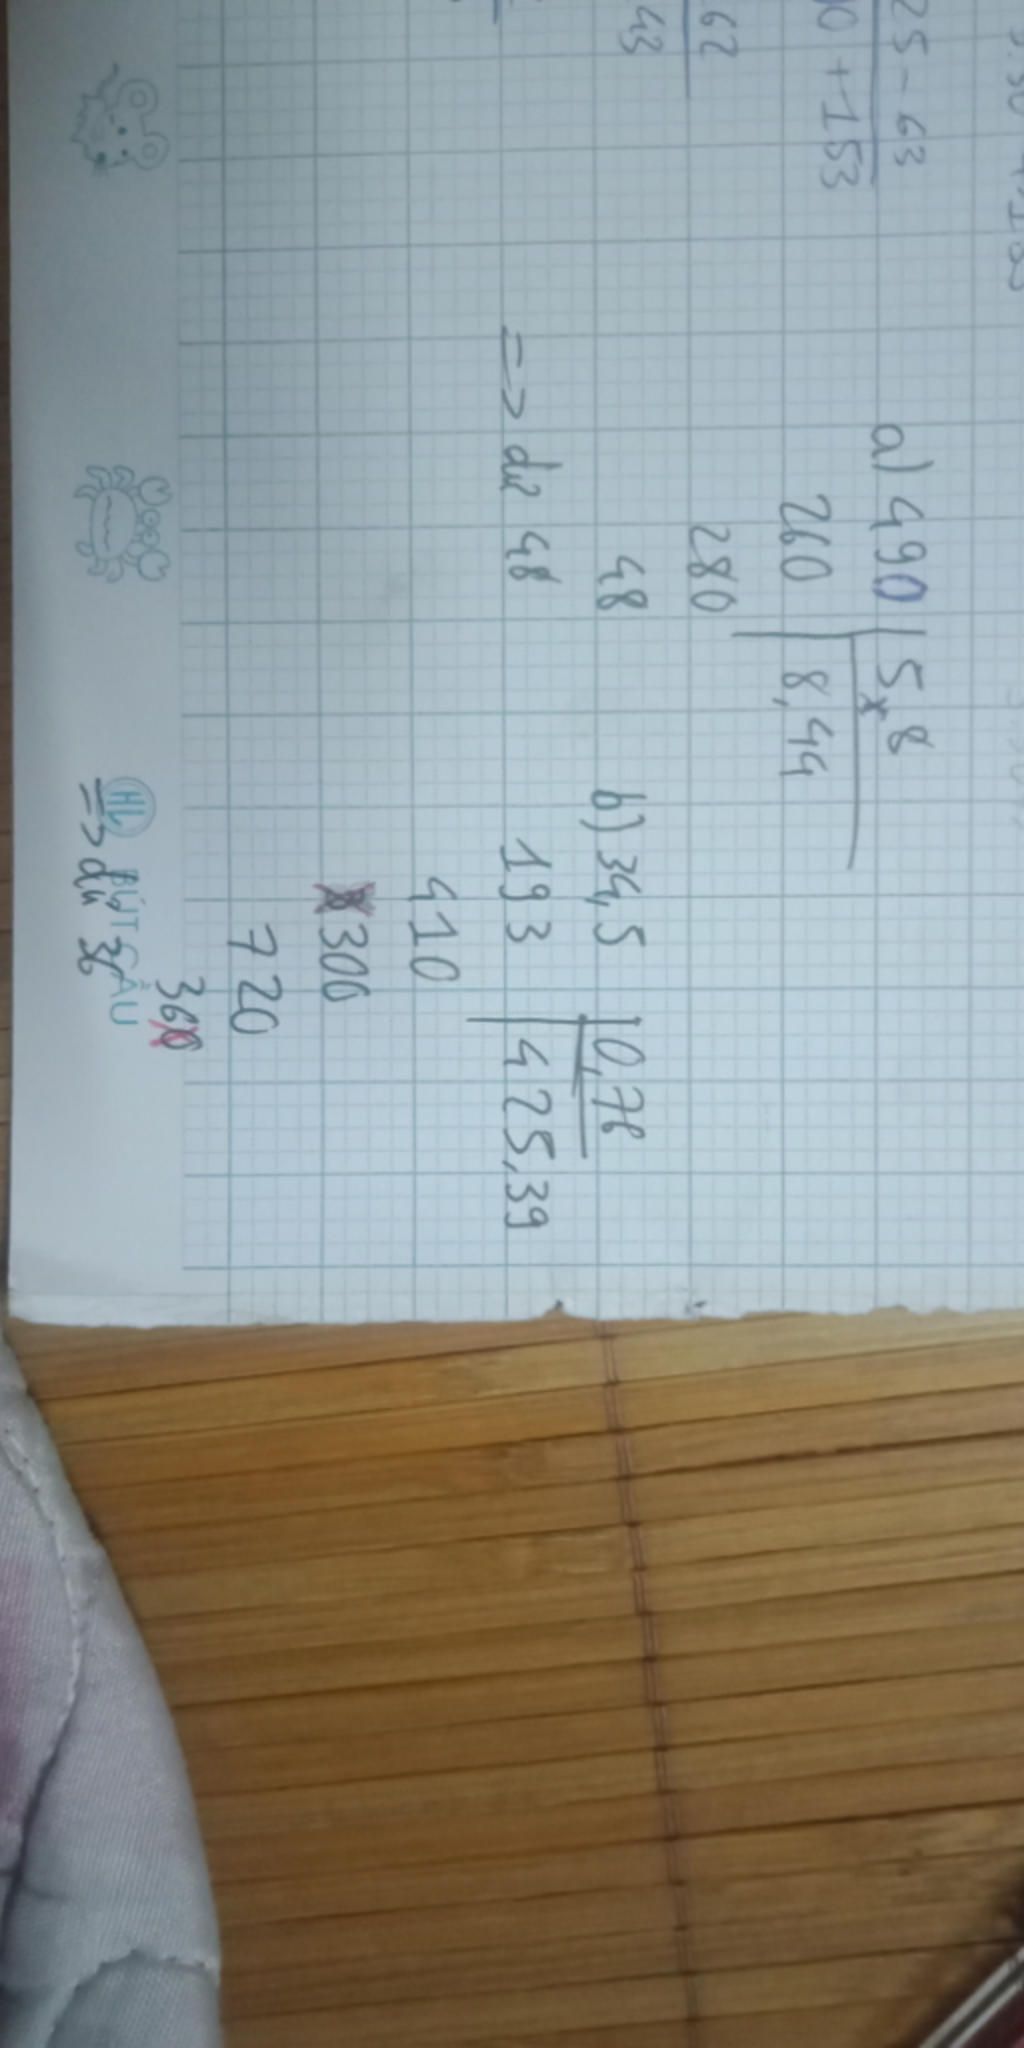 25 - 63
0 + 153
62
43
a) 490 | 5,8
260 | 8,44
280
48
=> dư 48
b) 34,5 | 0,76
193 | 425,39
410
300
720
360
HL BÚT CÂU
=> dư 36